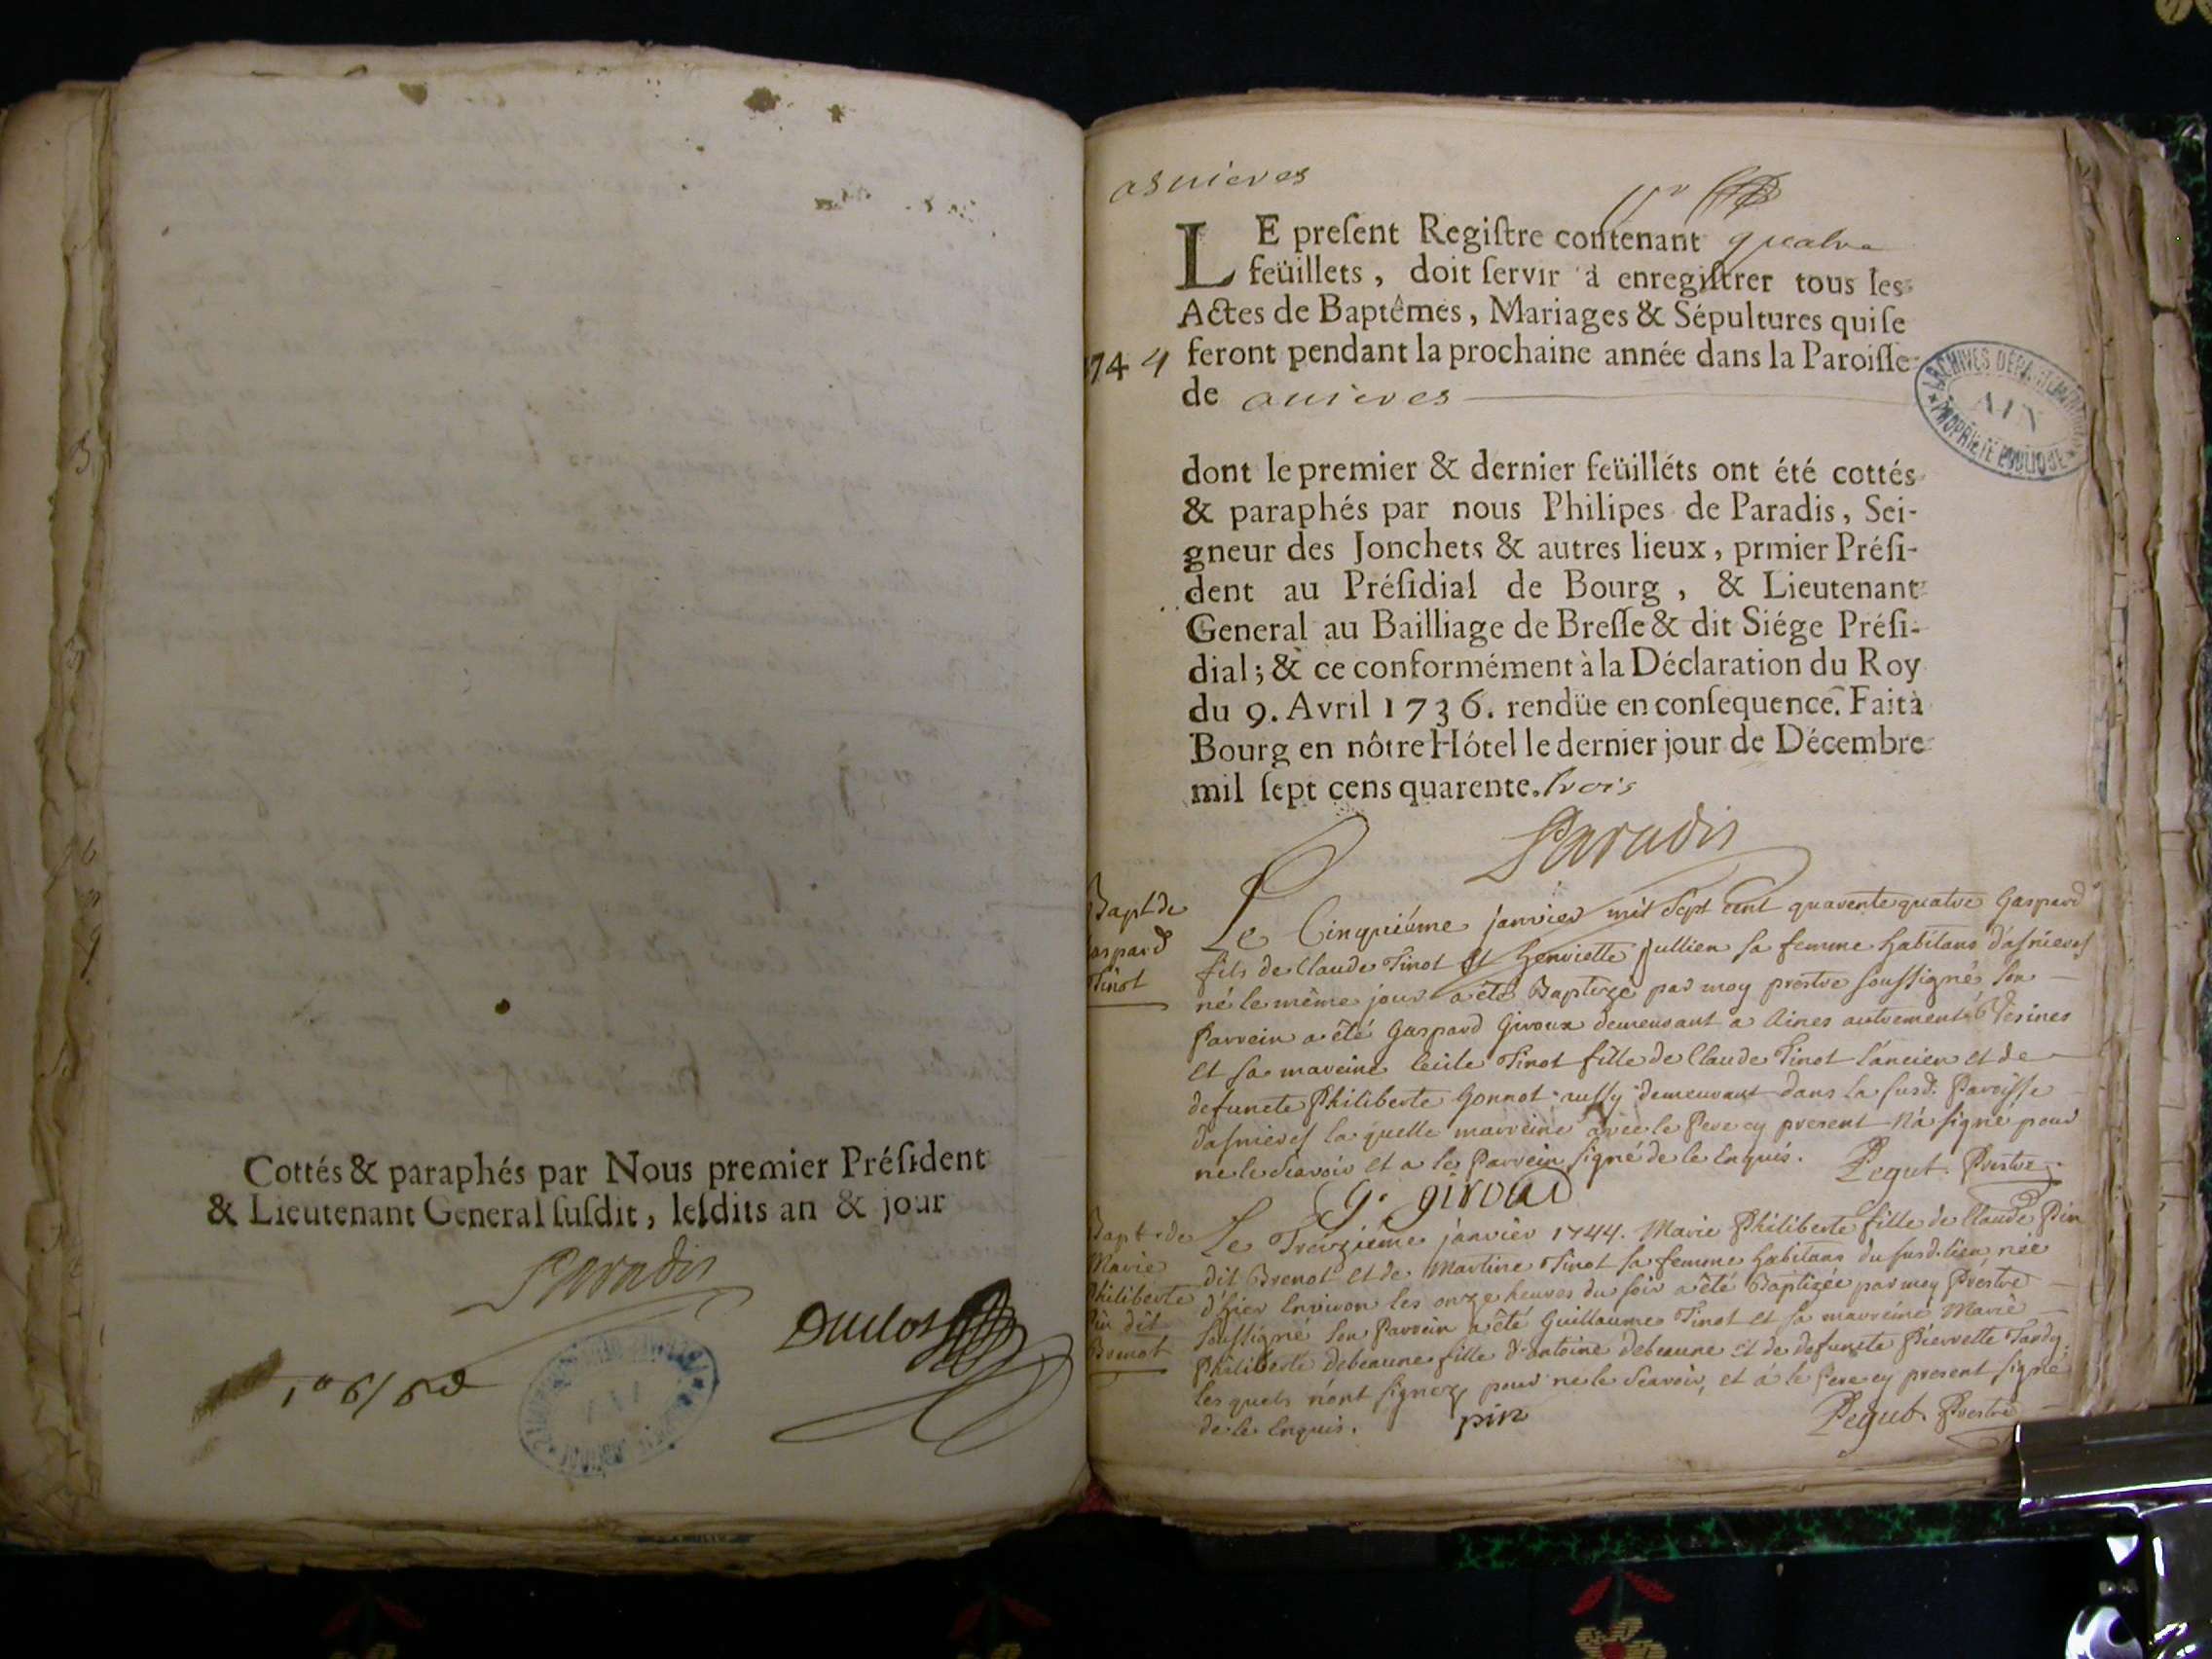 Cottés & paraphés par Nous premier Préſident
& Lieutenant General ſuſdit, leſdits an & jour
Paradis
Duclos
asnieres
LE preſent Regiſtre contenant quatre
feüillets, doit ſervir à enregiſtrer tous les
Actes de Baptêmes, Mariages & Sépultures qui ſe
1744 feront pendant la prochaine année dans la Paroiſſe
de anieres
ARCHIVES DÉPARTEMENTALES
AIN
PROPRIÉTÉ PUBLIQUE
dont le premier & dernier feüilléts ont été cottés
& paraphés par nous Philipes de Paradis, Sei-
gneur des Jonchets & autres lieux, prmier Préſi-
dent au Préſidial de Bourg, & Lieutenant
General au Bailliage de Breſſe & dit Siége Préſi-
dial; & ce conformément à la Déclaration du Roy
du 9. Avril 1736. rendüe en conſequence. Fait à
Bourg en nôtre Hôtel le dernier jour de Décembre
mil ſept cens quarente. trois
Paradis
Bapt de
Gaspard
Tinot
Le Cinquiéme janvier mil Sept Cent quarente quatre Gaspard
fils de Claude Tinot et henriette Jullien sa femme habitans d'asnieres
né le même jour a été Baptizé par moy prestre soussigné son
Parrein a été Gaspard Giroux demeurant a Aines autrement Vésines
et sa mareine Cecile Tinot fille de Claude Tinot l'ancien et de
defuncte Philiberte Gonnot aussy demeurant dans la susd. Paroisse
dasnieres laquelle marreine avec le Pere cy present N'a signé pour
ne le Scavoir et a le Parrein signé de le Enquis. Pegut. Prestre
G. giroud
Bapt. de
Marie
Philiberte
Pin dit
Brenot
Le Treizieme janvier 1744. Marie Philiberte fille de Claude Pin
dit Brenot et de Martine Tinot sa femme habitans du susd. lieu née
d'hier Environ les onze heures du soir a été Baptizee par moy Prestre
soussigné son Parrein a été Guillaume Tinot et sa marreine Marie
Philiberte debeaune fille d'antoine debeaune et de defuncte Pierrette Tardy
les quels n'ont signez pour ne le Scavoir, et a le Pere cy present signé
de le Enquis. pin Pegut. Prestre